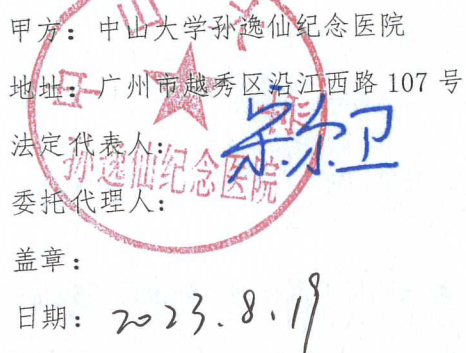 甲方：中山大学孙逸仙纪念医院
地址：广州市越秀区沿江西路 107 号
法定代表人：宋尔卫
孙逸仙纪念医院
委托代理人：
盖章：
日期：2023.8.19